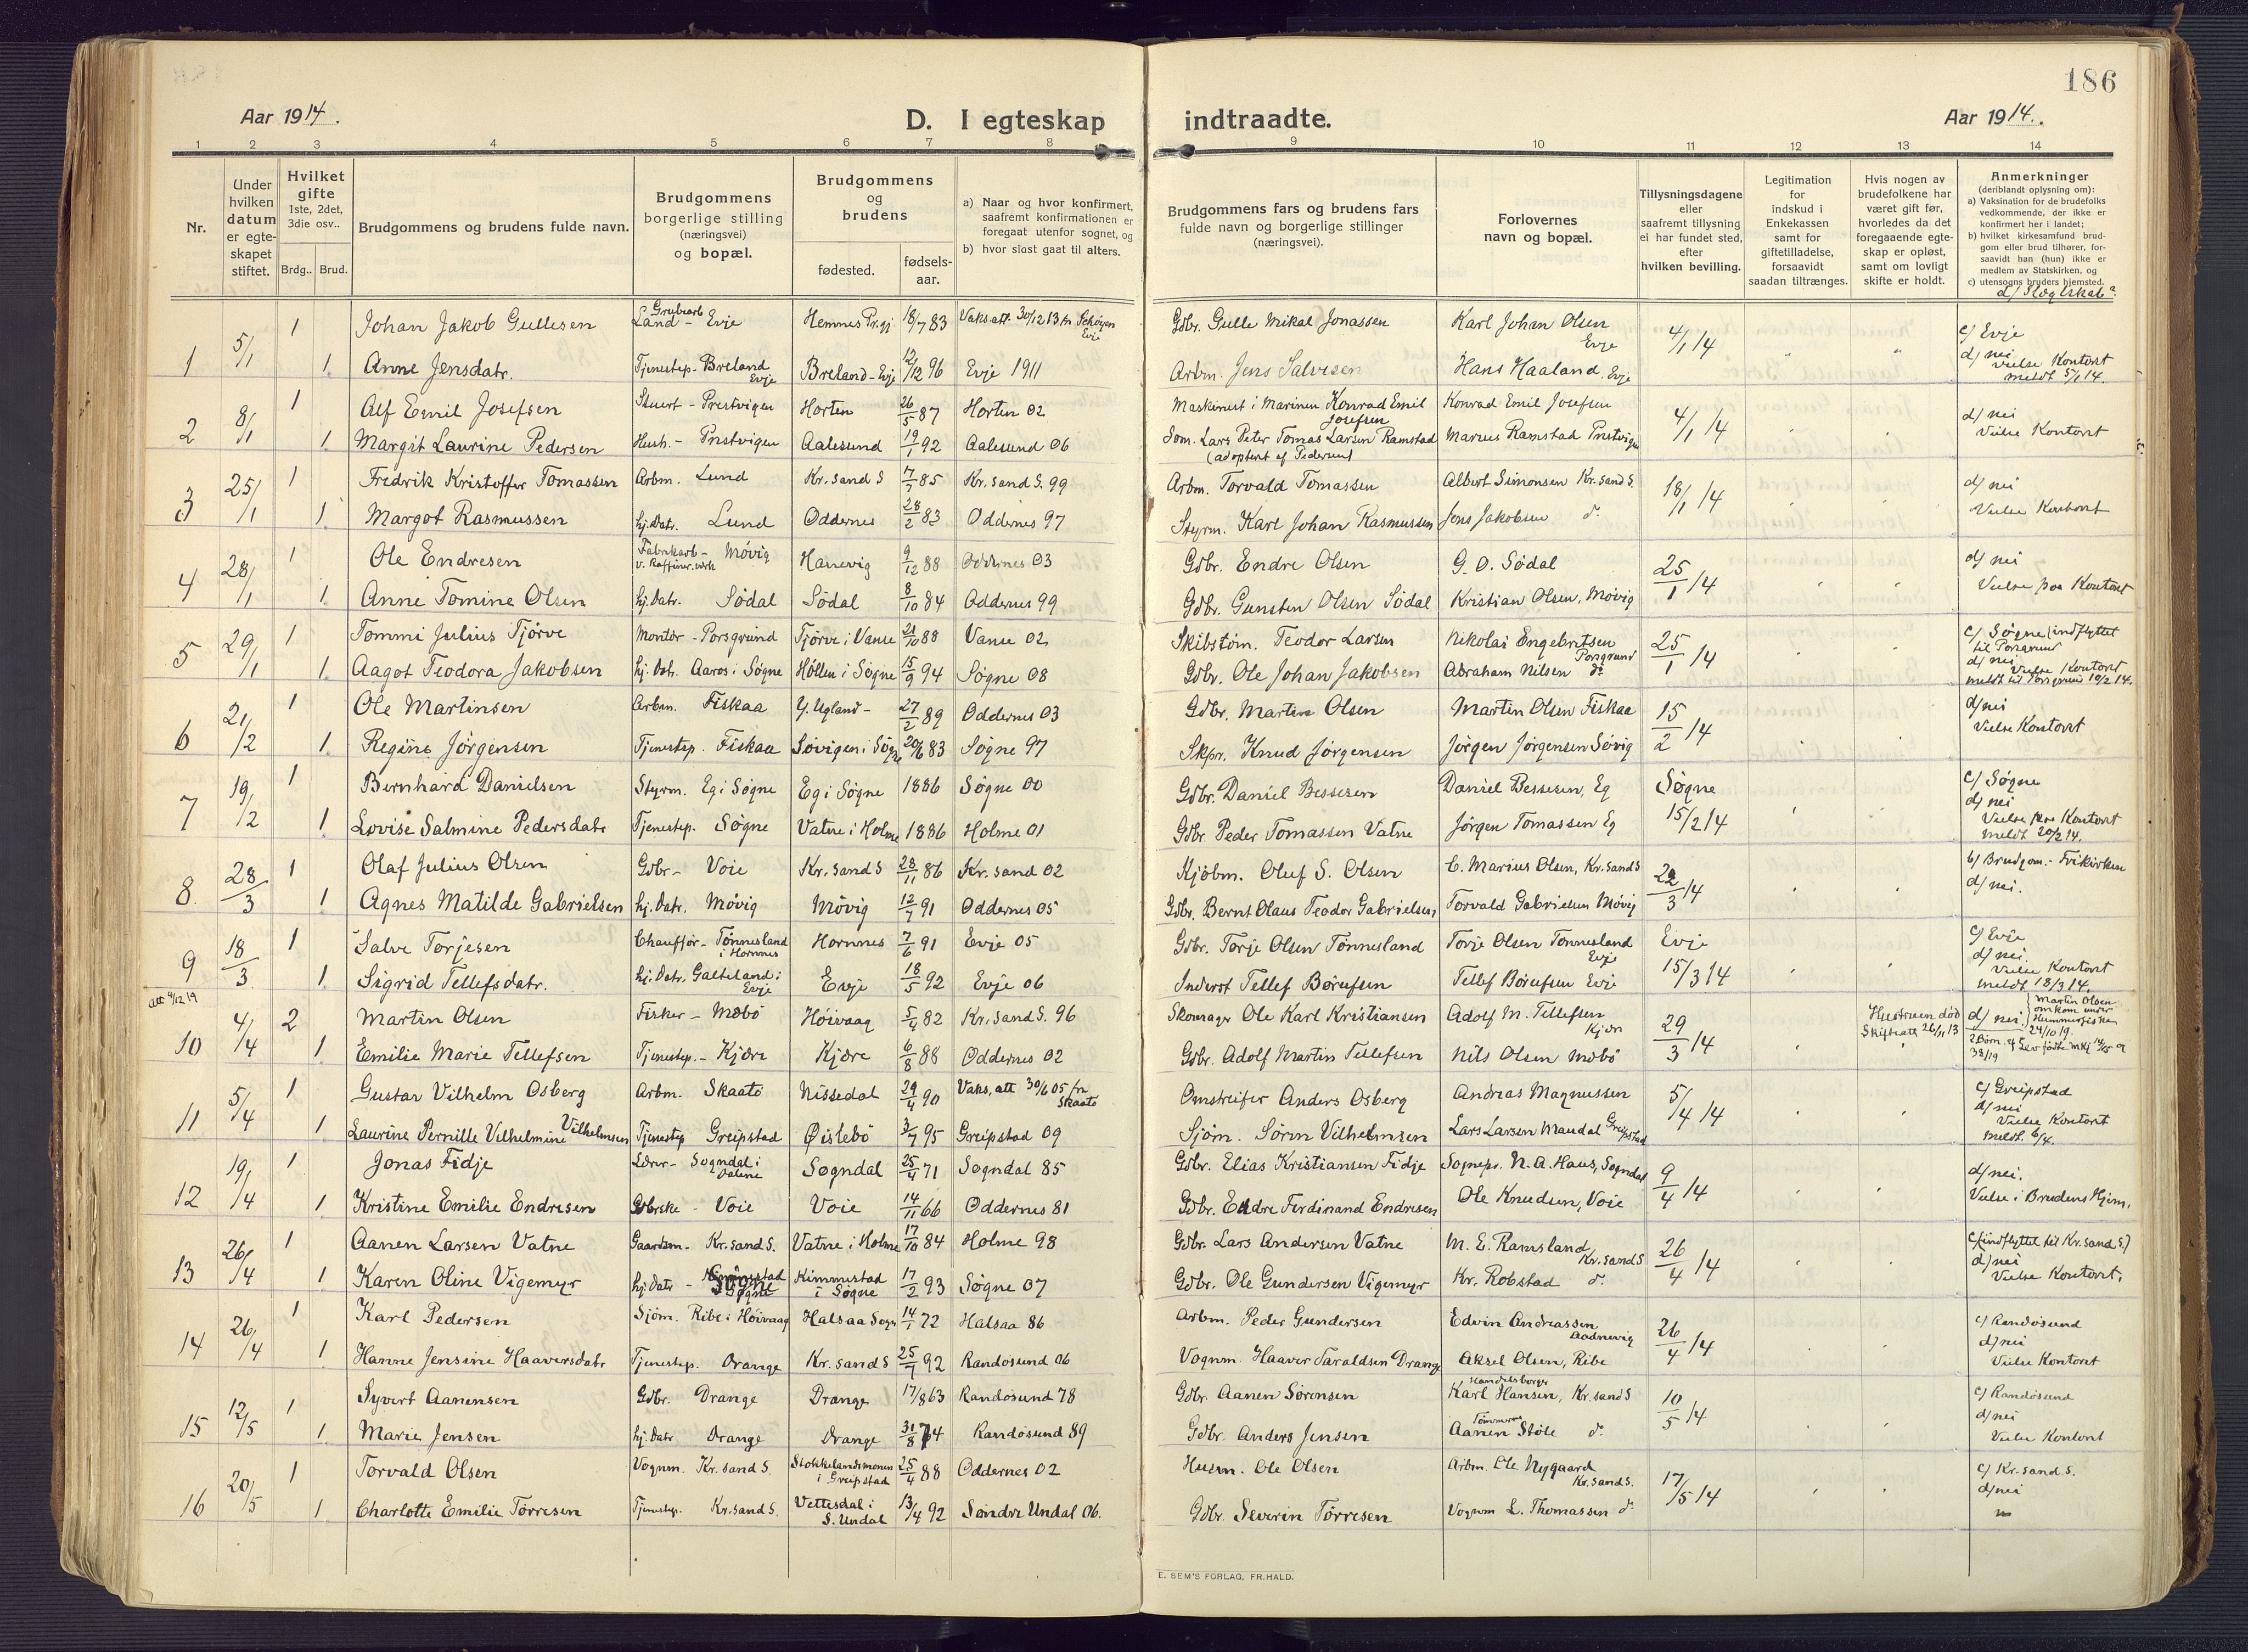 186
Aar 1914.
D. I egteskap
indtraadte.
Aar 1914.
1 2 3 4 5 6 7 8 9 10 11 12 13 14
Nr.
Under hvilken datum er egteskapet stiftet.
Hvilket gifte 1ste, 2det, 3die osv..
Brdg.. Brud.
Brudgommens og brudens fulde navn.
Brudgommens borgerlige stilling (næringsvei) og bopæl.
Brudgommens og brudens
fødested.
fødsels-aar.
a) Naar og hvor konfirmert, saafremt konfirmationen er foregaat utenfor sognet, og
b) hvor sidst gaat til alters.
Brudgommens fars og brudens fars fulde navn og borgerlige stillinger (næringsvei).
Forlovernes navn og bopæl.
Tillysningsdagene eller saafremt tillysning ei har fundet sted, efter hvilken bevilling.
Legitimation for indskud i Enkekassen samt for giftetilladelse, forsaavidt saadan tiltrænges.
Hvis nogen av brudefolkene har været gift før, hvorledes da det foregaaende egteskap er opløst, samt om lovligt skifte er holdt.
Anmerkninger (deriblandt oplysning om):
a) Vaksination for de brudefolks vedkommende, der ikke er konfirmert her i landet;
b) hvilket kirkesamfund brudgom eller brud tilhører, forsaavidt han (hun) ikke er medlem av Statskirken, og
c) utensogns bruders hjemsted.
d/ Slegtskab?
1 5/1 1 Johan Jakob Gullesen Grubearb Land - Evje Hemnes Pr.gj 18/7 83 Vaks att. 30/12 13 fr Schøyen Evje Gdbr. Gulle Mikal Jonassen Karl Johan Olsen Evje 4/1 14 c/ Evje
1 Anne Jensdatr. Tjenestep - Breland Evje Breland - Evje 12/12 96 Evje 1911 Arbm. Jens Salvesen Hans Haaland. Evje d/ nei Vielse Kontoret meldt 5/1 14.
2 8/1 1 Alf Emil Josefsen Stuert - Prestvigen Horten 26/5 87 Horten 02 Maskinest i Marinen Konrad Emil Josefsen Konrad Emil Josefsen 4/1 14 d/ nei
1 Margit Laurine Pedersen Hush. - Prestvigen Aalesund 19/1 92 Aalesund 06 Søm. Lars Peter Tomas Larsen Ramstad (adoptert af Pedersen) Marius Ramstad Prestvigen Vielse Kontoret
3 25/1 1 Fredrik Kristoffer Tomassen Arbm. Lund Kr. sand S 7/7 85 Kr. sand S. 99 Arbm. Torvald Tomassen Albert Simonsen Kr. sand S. 18/1 14 d/ nei
1 Margot Rasmussen hj. Datr. Lund Oddernes 28/2 83 Oddernes 97 Styrm. Karl Johan Rasmussen Jens Jakobsen do Vielse Kontoret
4 28/1 1 Ole Endresen Fabrikarb - Møvig v. Raffiner.verk Hanevig 9/12 88 Oddernes 03 Gdbr. Endre Olsen G. O. Sødal 25/1 14 d/ nei
1 Anne Tomine Olsen hj. Datr. Sødal Sødal 8/10 84 Oddernes 99 Gdbr. Gunsten Olsen Sødal Kristian Olsen, Møvig Vielse paa Kontoret
5 29/1 1 Tommi Julius Tjörve Montør - Porsgrund Tjörve i Vanse 21/10 88 Vanse 02 Skibstøm. Teodor Larsen Nikolai Engebretsen Porsgrund 25/1 14 c/ Søgne (indflyttet til Porsgrund
1 Aagot Teodora Jakobsen hj. Datr. Aaros i Søgne Höllen i Søgne 15/9 94 Søgne 08 Gdbr. Ole Johan Jakobsen Abraham Nilsen do d/ nei Vielse Kontoret meldt til Porsgrund 10/2 14.
6 21/2 1 Ole Martinsen Arbm. Fiskaa Y. Ugland - 27/2 89 Oddernes 03 Gdbr. Martin Olsen Martin Olsen Fiskaa 15/2 14 d/ nei
1 Regine Jörgensen Tjenestep. Fiskaa Søvigen i Søgne 20/6 83 Søgne 97 Skpr. Knud Jørgensen Jörgen Jørgensen Søvig Vielse Kontoret
7 19/2 1 Bernhard Danielsen Styrm. Eg i Søgne Eg i Søgne 1886 Søgne 00 Gdbr. Daniel Bessesen Daniel Bessesen, Eg Søgne 15/2 14 c/ Søgne
1 Lovise Salmine Pedersdatr Tjenestep. Søgne Vatne i Holme 1886 Holme 01 Gdbr. Peder Tomassen Vatne Jörgen Tomassen Eg d/ nei Vielse paa Kontoret meldt 20/2 14.
8. 28/3 1 Olaf Julius Olsen Gdbr - Voie Kr. sand S 28/11 86 Kr. sand 02 Kjöbm. Oluf S. Olsen C. Marius Olsen, Kr. sand S 22/3 14 b/ Brudgom. - Frikirken
1 Agnes Matilde Gabrielsen hj. Datr. Møvig Møvig 12/7 91 Oddernes 05 Gdbr. Bernt Olaus Teodor Gabrielsen Torvald Gabrielsen Møvig d/ nei.
9 18/3 1 Salve Torjesen Chaufför - Tønnesland i Hornnes Hornnes 7/6 91 Evje 05 Gdbr. Torje Olsen Tönnesland Torje Olsen Tonnesland Evje Evje 15/3 14 c/ Evje
1 Sigrid Tellefsdatr. hj. Datr. Galteland i Evje Evje 18/5 92 Evje 06 Inderst Tellef Börufsen Tellef Börufsen Evje d/ nei. Vielse Kontoret meldt 18/3 14.
Att 4/12 19
10 4/4 2 Martin Olsen Fisker - Mæbö Höivaag 5/4 82 Kr. sand S. 96 Skomager Ole Karl Kristiansen Adolf M. Tellefsen Kjær 29/3 14 Hustruen död Skifteatt 26/11 13 d/ nei. Martin Olsen omkom under Hummerfiske 24/10 19.
1 Emilie Marie Tellefsen Tjenestep. - Kjære Kjære 6/8 88 Oddernes 02 Gdbr. Adolf Martin Tellefsen Nils Olsen Mæbö
11 5/4 1 Gustav Vilhelm Osberg Arbm. Skaatö Nissedal 29/4 90 Vaks, att 30/6 05 fr Skaatö Omstreifer Anders Osberg Andreas Magnussen 5/4 14 c/ Greipstad
1 Laurine Pernille Vilhelmine Vilhelmsen Tjenestep Greipstad Øislebö 3/7 95 Greipstad 09 Sjöm. Sören Vilhelmsen Lars Larsen Mandal Greipstad d/ nei Vielse Kontoret meldt. 6/4.
12 19/4 1 Jonas Fidje Lærer - Sogndal i Dalene Sogndal 25/4 71 Sogndal 85 Gdbr. Elias Kristiansen Fidje Sognepr. N. A. Haus, Sogndal 9/4 14 d/ nei.
1 Kristine Emilie Endresen Gdbrske - Voie Voie 14/11 66 Oddernes 81 Gdbr. Endre Ferdinand Endresen Ole Knudsen, Voie Vielse i Brudens Hjem.
13 26/4 1 Aanen Larsen Vatne Gaardsm. Kr. sand S. Vatne i Holme 17/10 84 Holme 98 Gdbr. Lars Andersen Vatne M. E. Ramsland Kr. sand S 26/4 14 c/ (indflyttet til Kr. sand S.)
1 Karen Oline Vigemyr hj. Datr - Søgne Kimmestad i Søgne 17/2 93 Søgne 07 Gdbr. Ole Gundersen Vigemyr Kr. Robstad do d/ nei Vielse Kontoret.
14 26/4 1 Karl Pedersen Sjöm. Ribe i Höivaag Halsaa Sogn 14/1 72 Halsaa 86 Arbm. Peder Gundersen Edvin Andreassen Aadnevig 26/4 14 c/ Randøsund
1 Hanne Jensine Haaversdatr Tjenestep. Drange Kr. sand S 25/7 92 Randøsund 06 Vognm. Haaver Taraldsen Drange Aksel Olsen, Ribe d/ nei Vielse Kontoret
15 12/5 1 Syvert Aanensen Gdbr. Drange Drange 17/8 63 Randøsund 78 Gdbr. Aanen Sörensen Handelsborger Karl Hansen, Kr. sand S 10/5 14 c/ Randøsund
1 Marie Jensen hj. Datr Drange Drange 31/8 74 Randøsund 89 Gdbr. Anders Jensen Aanen Stöle do d/ nei Vielse Kontoret
16 20/5 1 Torvald Olsen Vognm. Kr. sand S. Stokkelandsmonen i Greipstad 25/4 88 Oddernes 02 Husm. Ole Olsen Arbm. Ole Nygaard Kr. sand S. 17/5 14 c/ Kr. sand S.
1 Charlotte Emilie Tørresen Tjenestep. Kr. sand S. Vettesdal i S. Undal 13/4 92 Söndre Undal 06. Gdbr. Severin Törresen Vognm L. Thomassen do d/ nei
E. SEM'S FORLAG, FR.HALD.